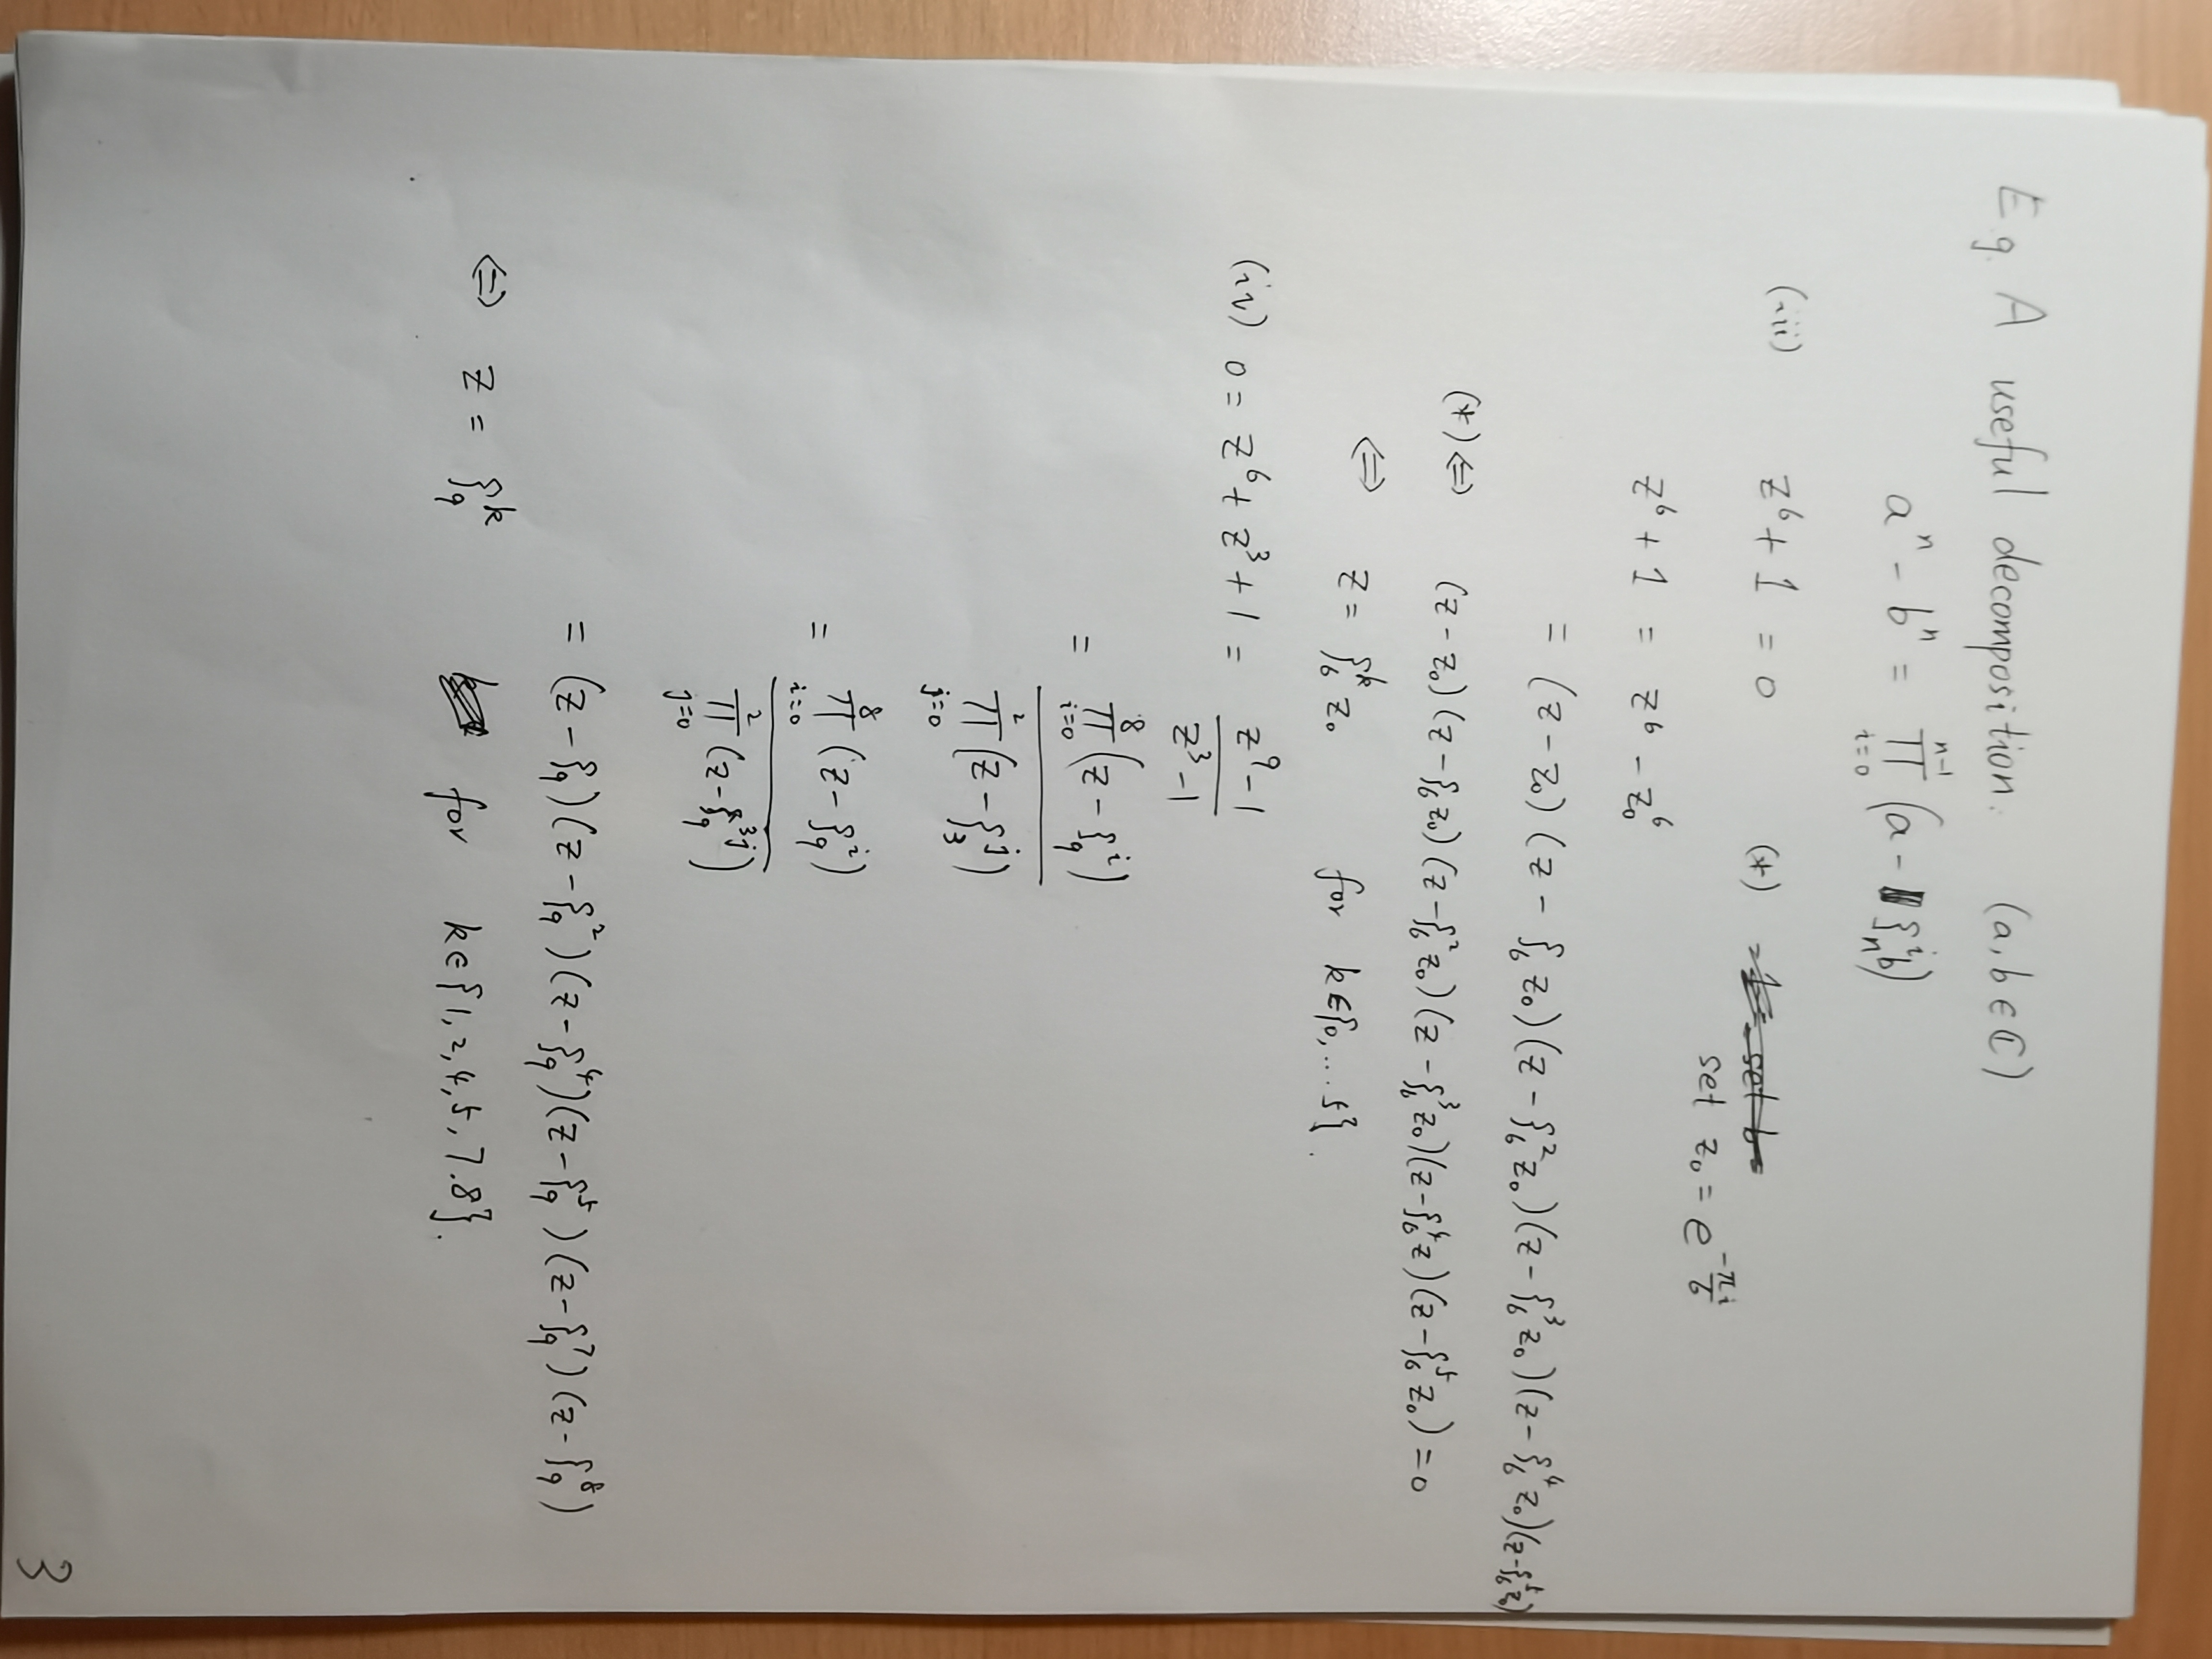 E.g. A useful decomposition. (a, b ∈ ℂ)
aⁿ - bⁿ = ∏_{i=0}^{n-1} (a - ζ_n^i b)
(iii) z⁶ + 1 = 0 (*)
set z₀ = e^{-πi/6}
z⁶ + 1 = z⁶ - z₀⁶
= (z - z₀) (z - ζ₆ z₀) (z - ζ₆² z₀) (z - ζ₆³ z₀) (z - ζ₆⁴ z₀) (z - ζ₆⁵ z₀)
(*) ⇔ (z - z₀) (z - ζ₆ z₀) (z - ζ₆² z₀) (z - ζ₆³ z₀) (z - ζ₆⁴ z) (z - ζ₆⁵ z₀) = 0
⇔ z = ζ₆^k z₀ for k ∈ {0, ... 5}.
(iv) 0 = z⁶ + z³ + 1 = \frac{z⁹ - 1}{z³ - 1}
= \frac{∏_{i=0}^{8} (z - ζ₉^i)}{∏_{j=0}^{2} (z - ζ₃^j)}
= \frac{∏_{i=0}^{8} (z - ζ₉^i)}{∏_{j=0}^{2} (z - ζ₉^{3j})}
= (z - ζ₉) (z - ζ₉²) (z - ζ₉⁴) (z - ζ₉⁵) (z - ζ₉⁷) (z - ζ₉⁸)
⇔ z = ζ₉^k for k ∈ {1, 2, 4, 5, 7. 8}.
3